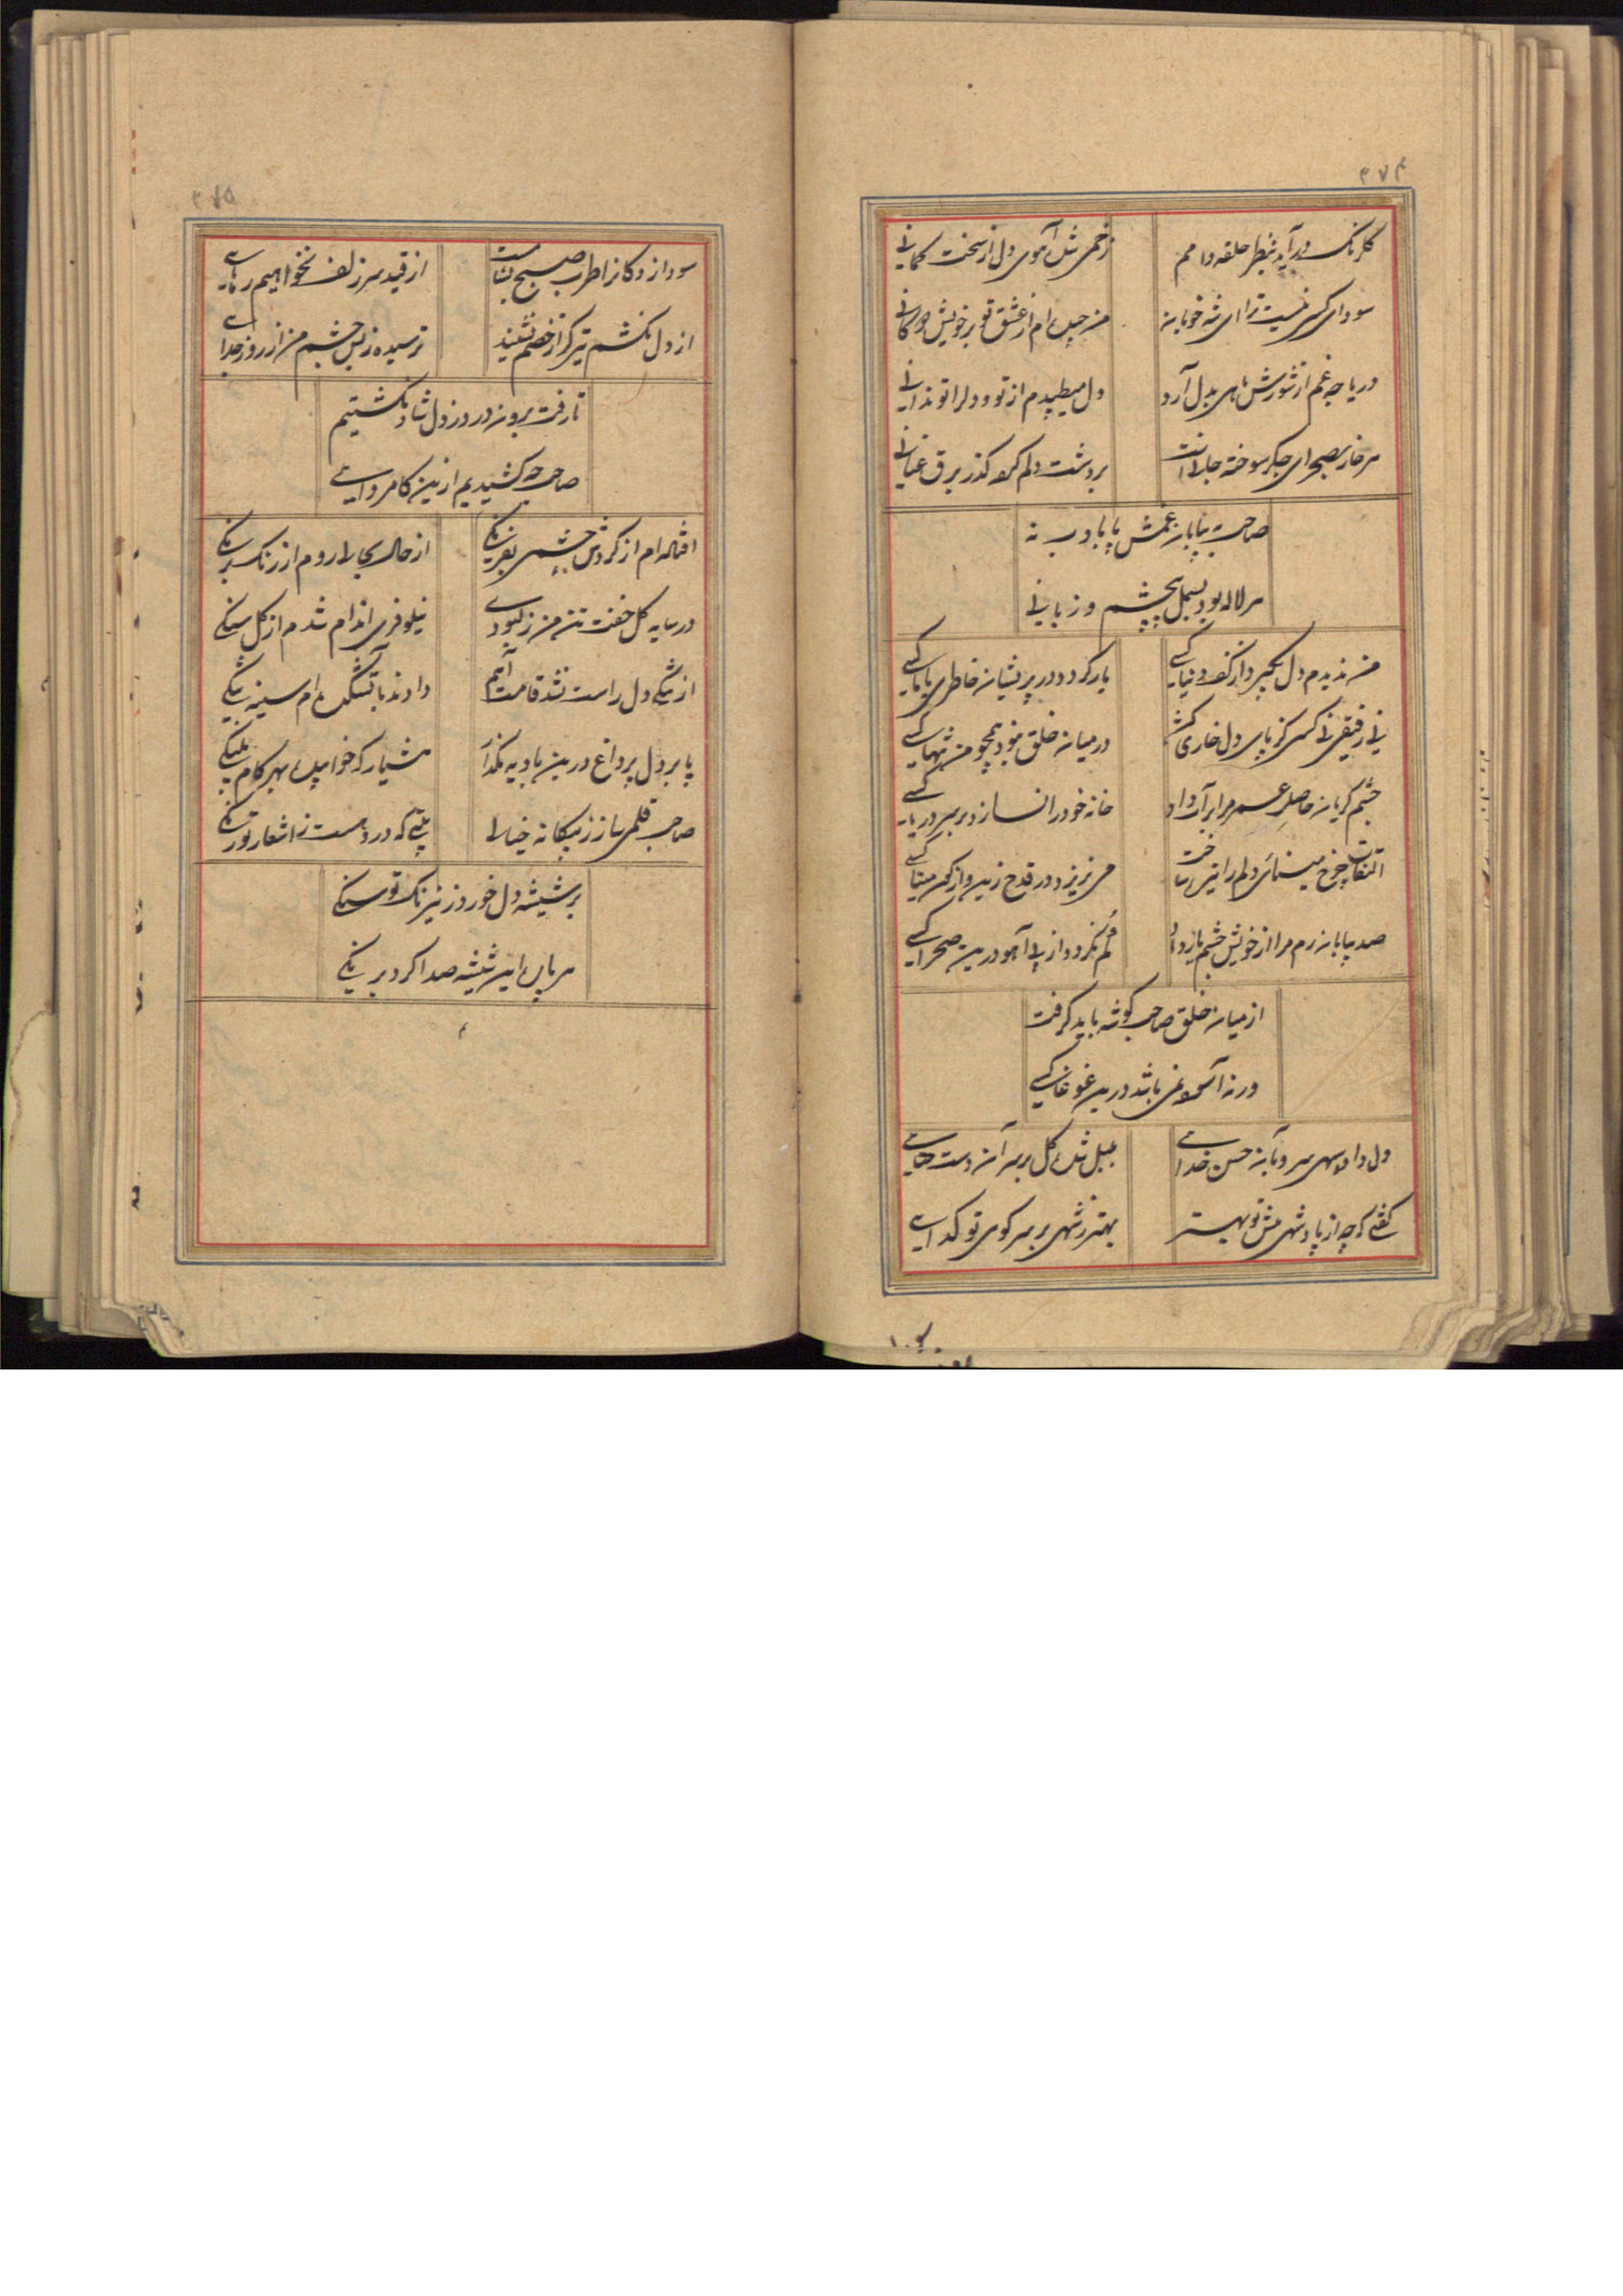 ۲۷۴
گلرنگ در آید بنظر حلقه دامم
زخمی شده آهوی دل از سخت کمانی
سودای کسی نیست ترا ای شه خوبان
من چیده ام از عشق تو بر خویش دکانی
دریاچه غم از شورش های بدل آرد
دل میطپدم از تو و دلرا تو ندانی
هر خار بصحرای جگر سوخته جانیست
بر دشت دلم کرده گذر برق عنانی
صاحب به بیابان غمش پا بادب نه
هر لاله بود بسمل بی چشم و زبانی
من ندیدم دل نگیرد از کف دنیا کسی
یار گردد در پریشان خاطری با ما کسی
نی رفیقی نی کسی کز پای دل خاری کشد
در میان خلق نبود همچو من تنها کسی
چشم گریان حاصل عمر مرا بر آب داد
خانه خود را نسازد بر سر دریا کسی
التفات چرخ مینائی دلم را تیره ساخت
می نریزد در قدح زین واژگون مینا کسی
صد بیابان رم مرا از خویش چشم یار داد
گم نگردد از پی آهو درین صحرا کسی
از میان خلق صاحب گوشه باید گرفت
ورنه آسوده نمی باشد درین غوغا کسی
دل داد سهی سرو بآن حسن خدائی
بلبل شده گل بر سر آن دست حنائی
گفتی که چه از پادشهی پیش تو بهتر
بهتر ز شهی بر سر کوی تو گدائی
۲۷۵
سودا زدگانرا طرب صبح بناست
از قید سر زلف نخواهیم رهائی
از دل نکشم تیر که از خصم نشیند
ترسیده ز بس چشم من از روز جدائی
تا رفت برون درد ز دل شاد نگشتیم
صاحب چه کشیدیم ازین کامروائی
افتاده ام از گردش چشمی بفرنگی
از حال بحالی روم از رنگ برنگی
در سایه گل خفت تن من ز کبودی
نیلوفری اندام شدم از گل سنگی
از تنگی دل راست نشد قامت آهم
دادند بآتشکده ام سینه تنگی
پا بر دل پر داغ درین بادیه مگذار
هشیار که خوابیده بهر گام پلنگی
صاحب قلمی ساز ز پیکان خیالی
بیتی که در دست ز اشعار تو رنگی
بر شیشه دل خورد ز نیرنگ تو سنگی
هر پاره این شیشه صدا کرد برنگی